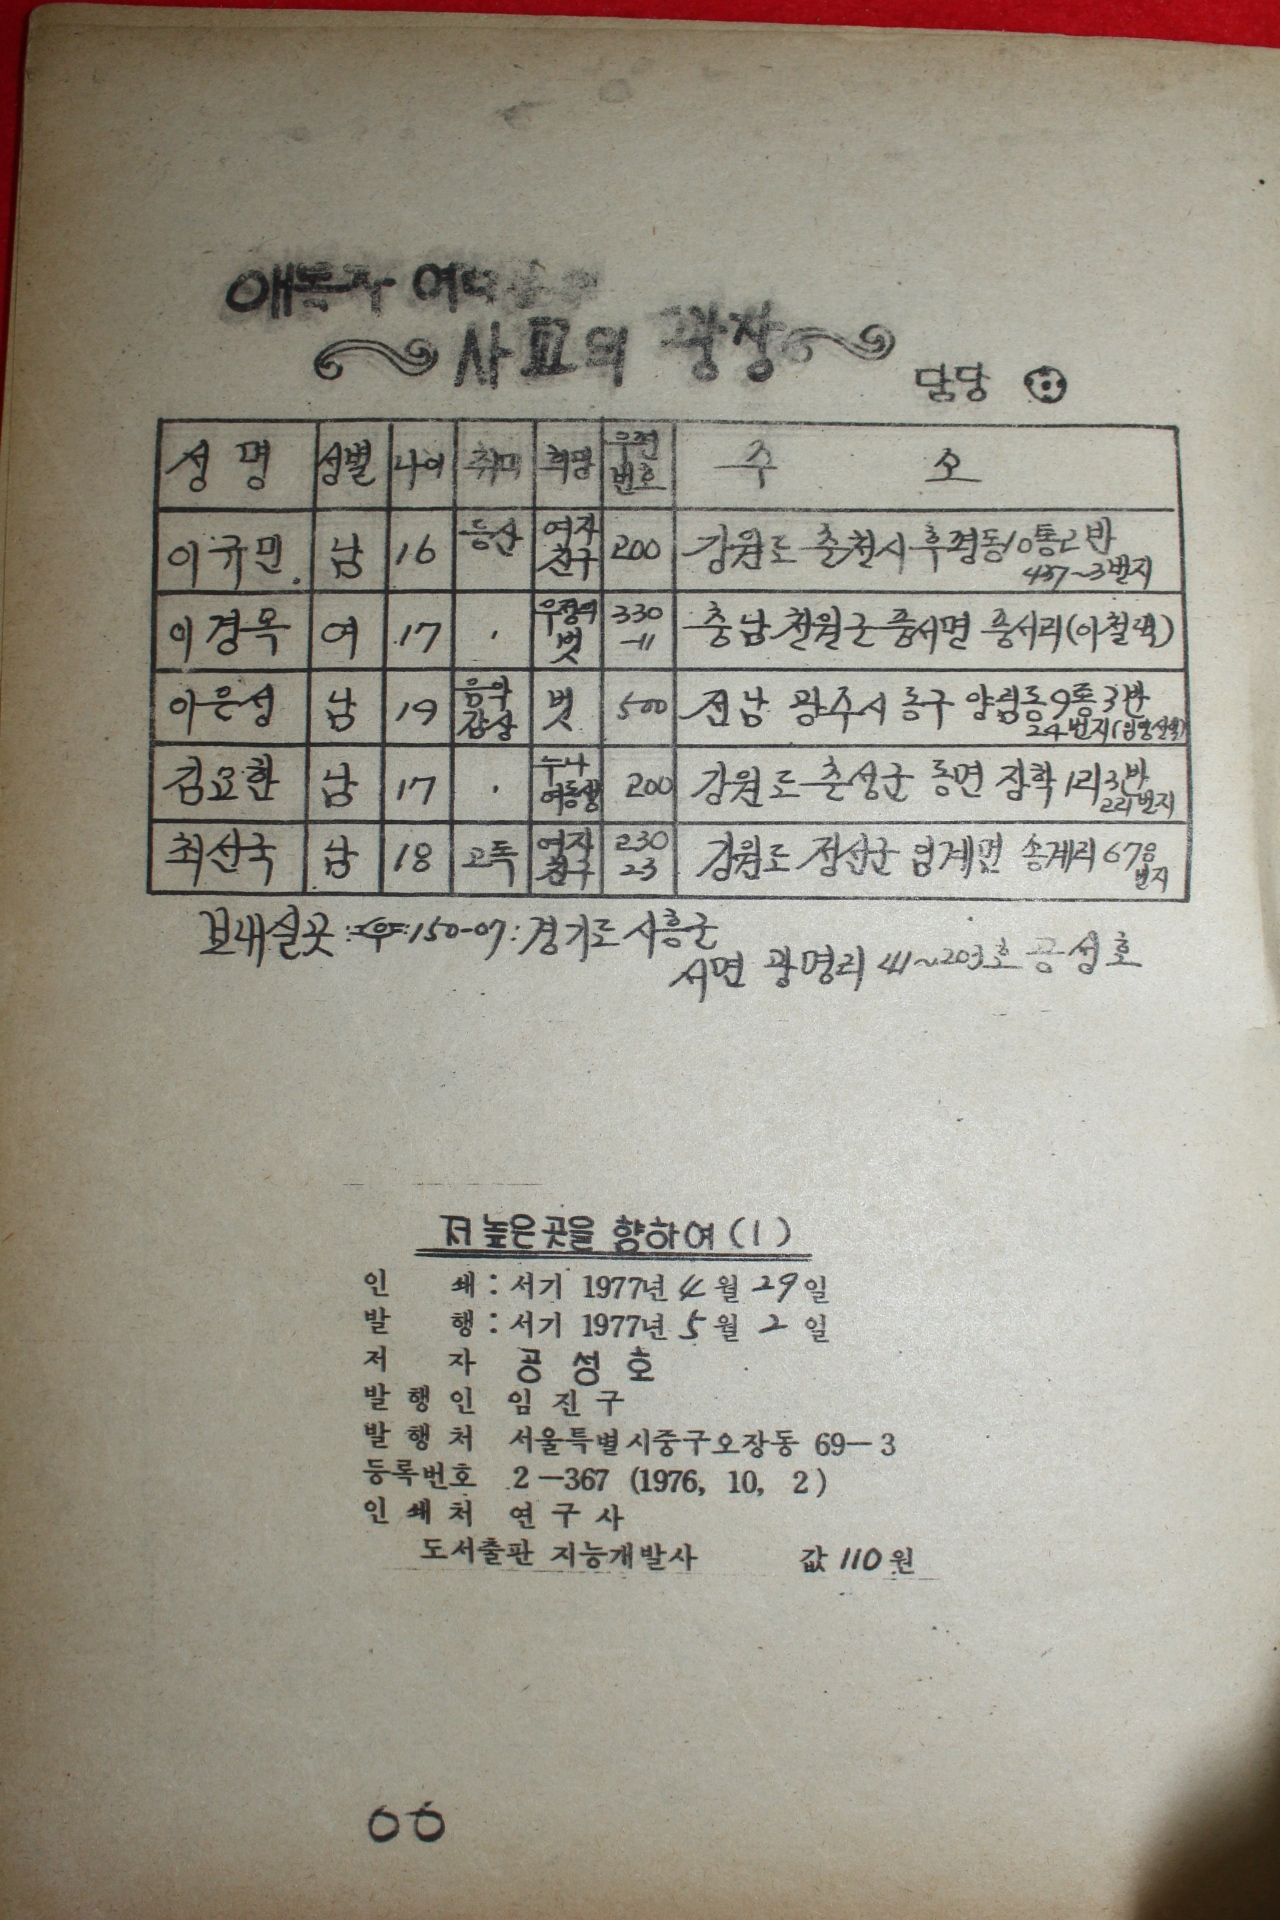 애독자 여러분의
사교의 광장
담당
성 명 성별 나이 취미 희망 우편번호 주 소
이규민 남 16 등산 여자친구 200 강원도 춘천시 후평동 10통 2반 437~3번지
이경옥 여 17 . 우정의 벗 330-11 충남 천원군 중서리(이철
이은성 남 19 음악감상 벗 500 전남 광주시 동구 양림동 9통 3반 24번지
김요한 남 17 . 누나 여동생 200 강원도 춘성군 동면 장학1리 3반 221번지
최선국 남 18 고독 여자친구 230 23 강원도 정선군 임계면 송계리 678 번지
보내실곳: 우 150-07: 경기도 시흥군
서면 광명리 41~203호 공성호
저 높은곳을 향하여 (1)
인 쇄 : 서기 1977년 4월 29일
발 행 : 서기 1977년 5월 2일
저 자 공 성 호
발 행 인 임 진 구
발 행 처 서울특별시중구오장동 69-3
등록번호 2-367 (1976, 10, 2)
인 쇄 처 연 구 사
도서출판 지능개발사 값 110원